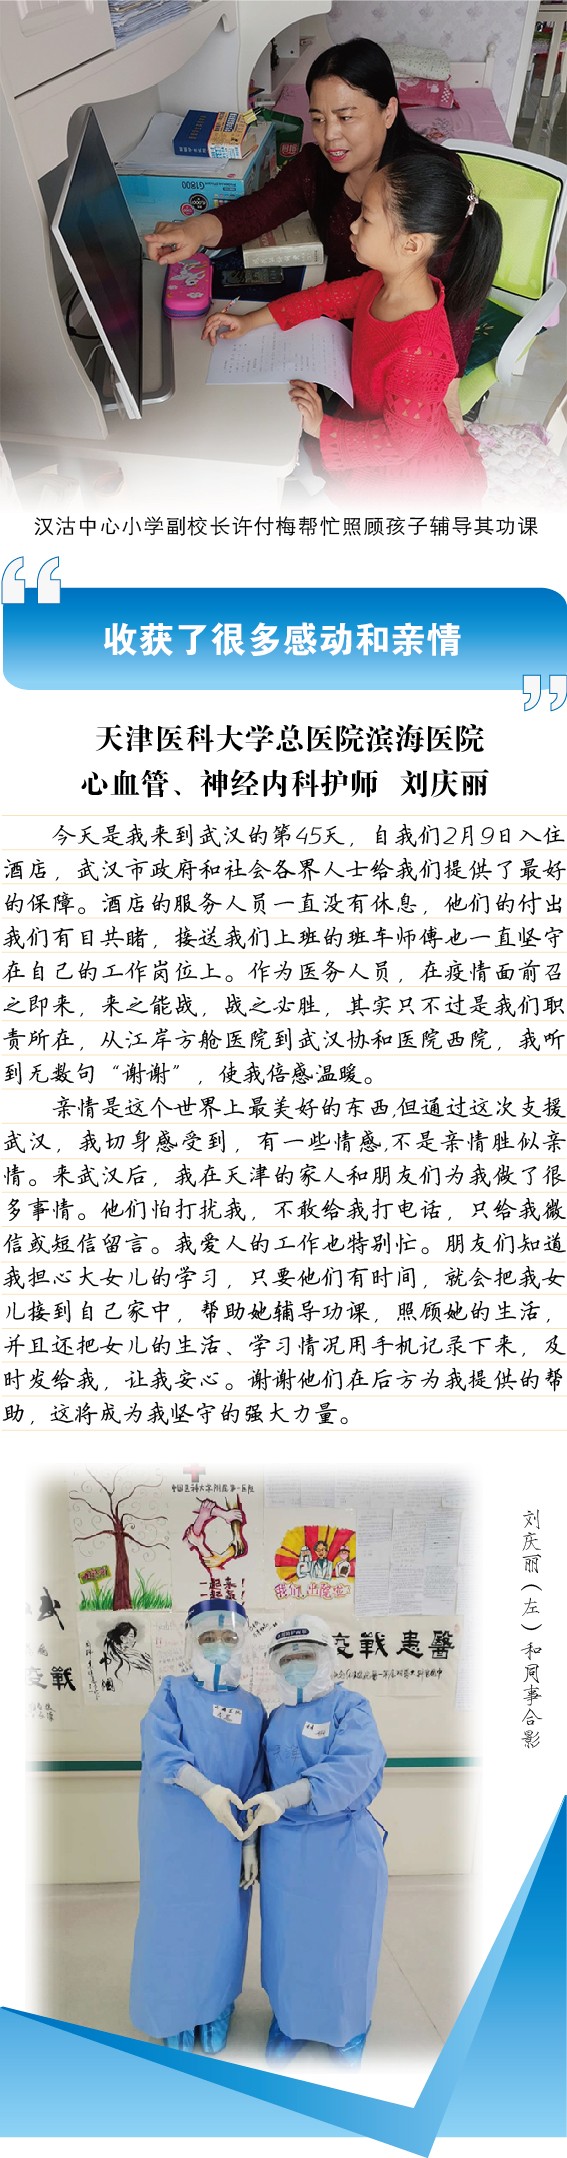 G1800
汉沽中心小学副校长许付梅帮忙照顾孩子辅导其功课
“
收获了很多感动和亲情
”
天津医科大学总医院滨海医院
心血管、神经内科护师 刘庆丽
今天是我来到武汉的第45天，自我们2月9日入住
酒店，武汉市政府和社会各界人士给我们提供了最好
的保障。酒店的服务人员一直没有休息，他们的付出
我们有目共睹，接送我们上班的班车师傅也一直坚守
在自己的工作岗位上。作为医务人员，在疫情面前召
之即来，来之能战，战之必胜，其实只不过是我们职
责所在，从江岸方舱医院到武汉协和医院西院，我听
到无数句“谢谢”，使我倍感温暖。
亲情是这个世界上最美好的东西,但通过这次支援
武汉，我切身感受到，有一些情感,不是亲情胜似亲
情。来武汉后，我在天津的家人和朋友们为我做了很
多事情。他们怕打扰我，不敢给我打电话，只给我微
信或短信留言。我爱人的工作也特别忙。朋友们知道
我担心大女儿的学习，只要他们有时间，就会把我女
儿接到自己家中，帮助她辅导功课，照顾她的生活，
并且还把女儿的生活、学习情况用手机记录下来，及
时发给我，让我安心。谢谢他们在后方为我提供的帮
助，这将成为我坚守的强大力量。
中国医科大学附属第一医院
一起来
我们
中国
疫戰
疫戰患醫
天津
刘庆丽（左）和同事合影